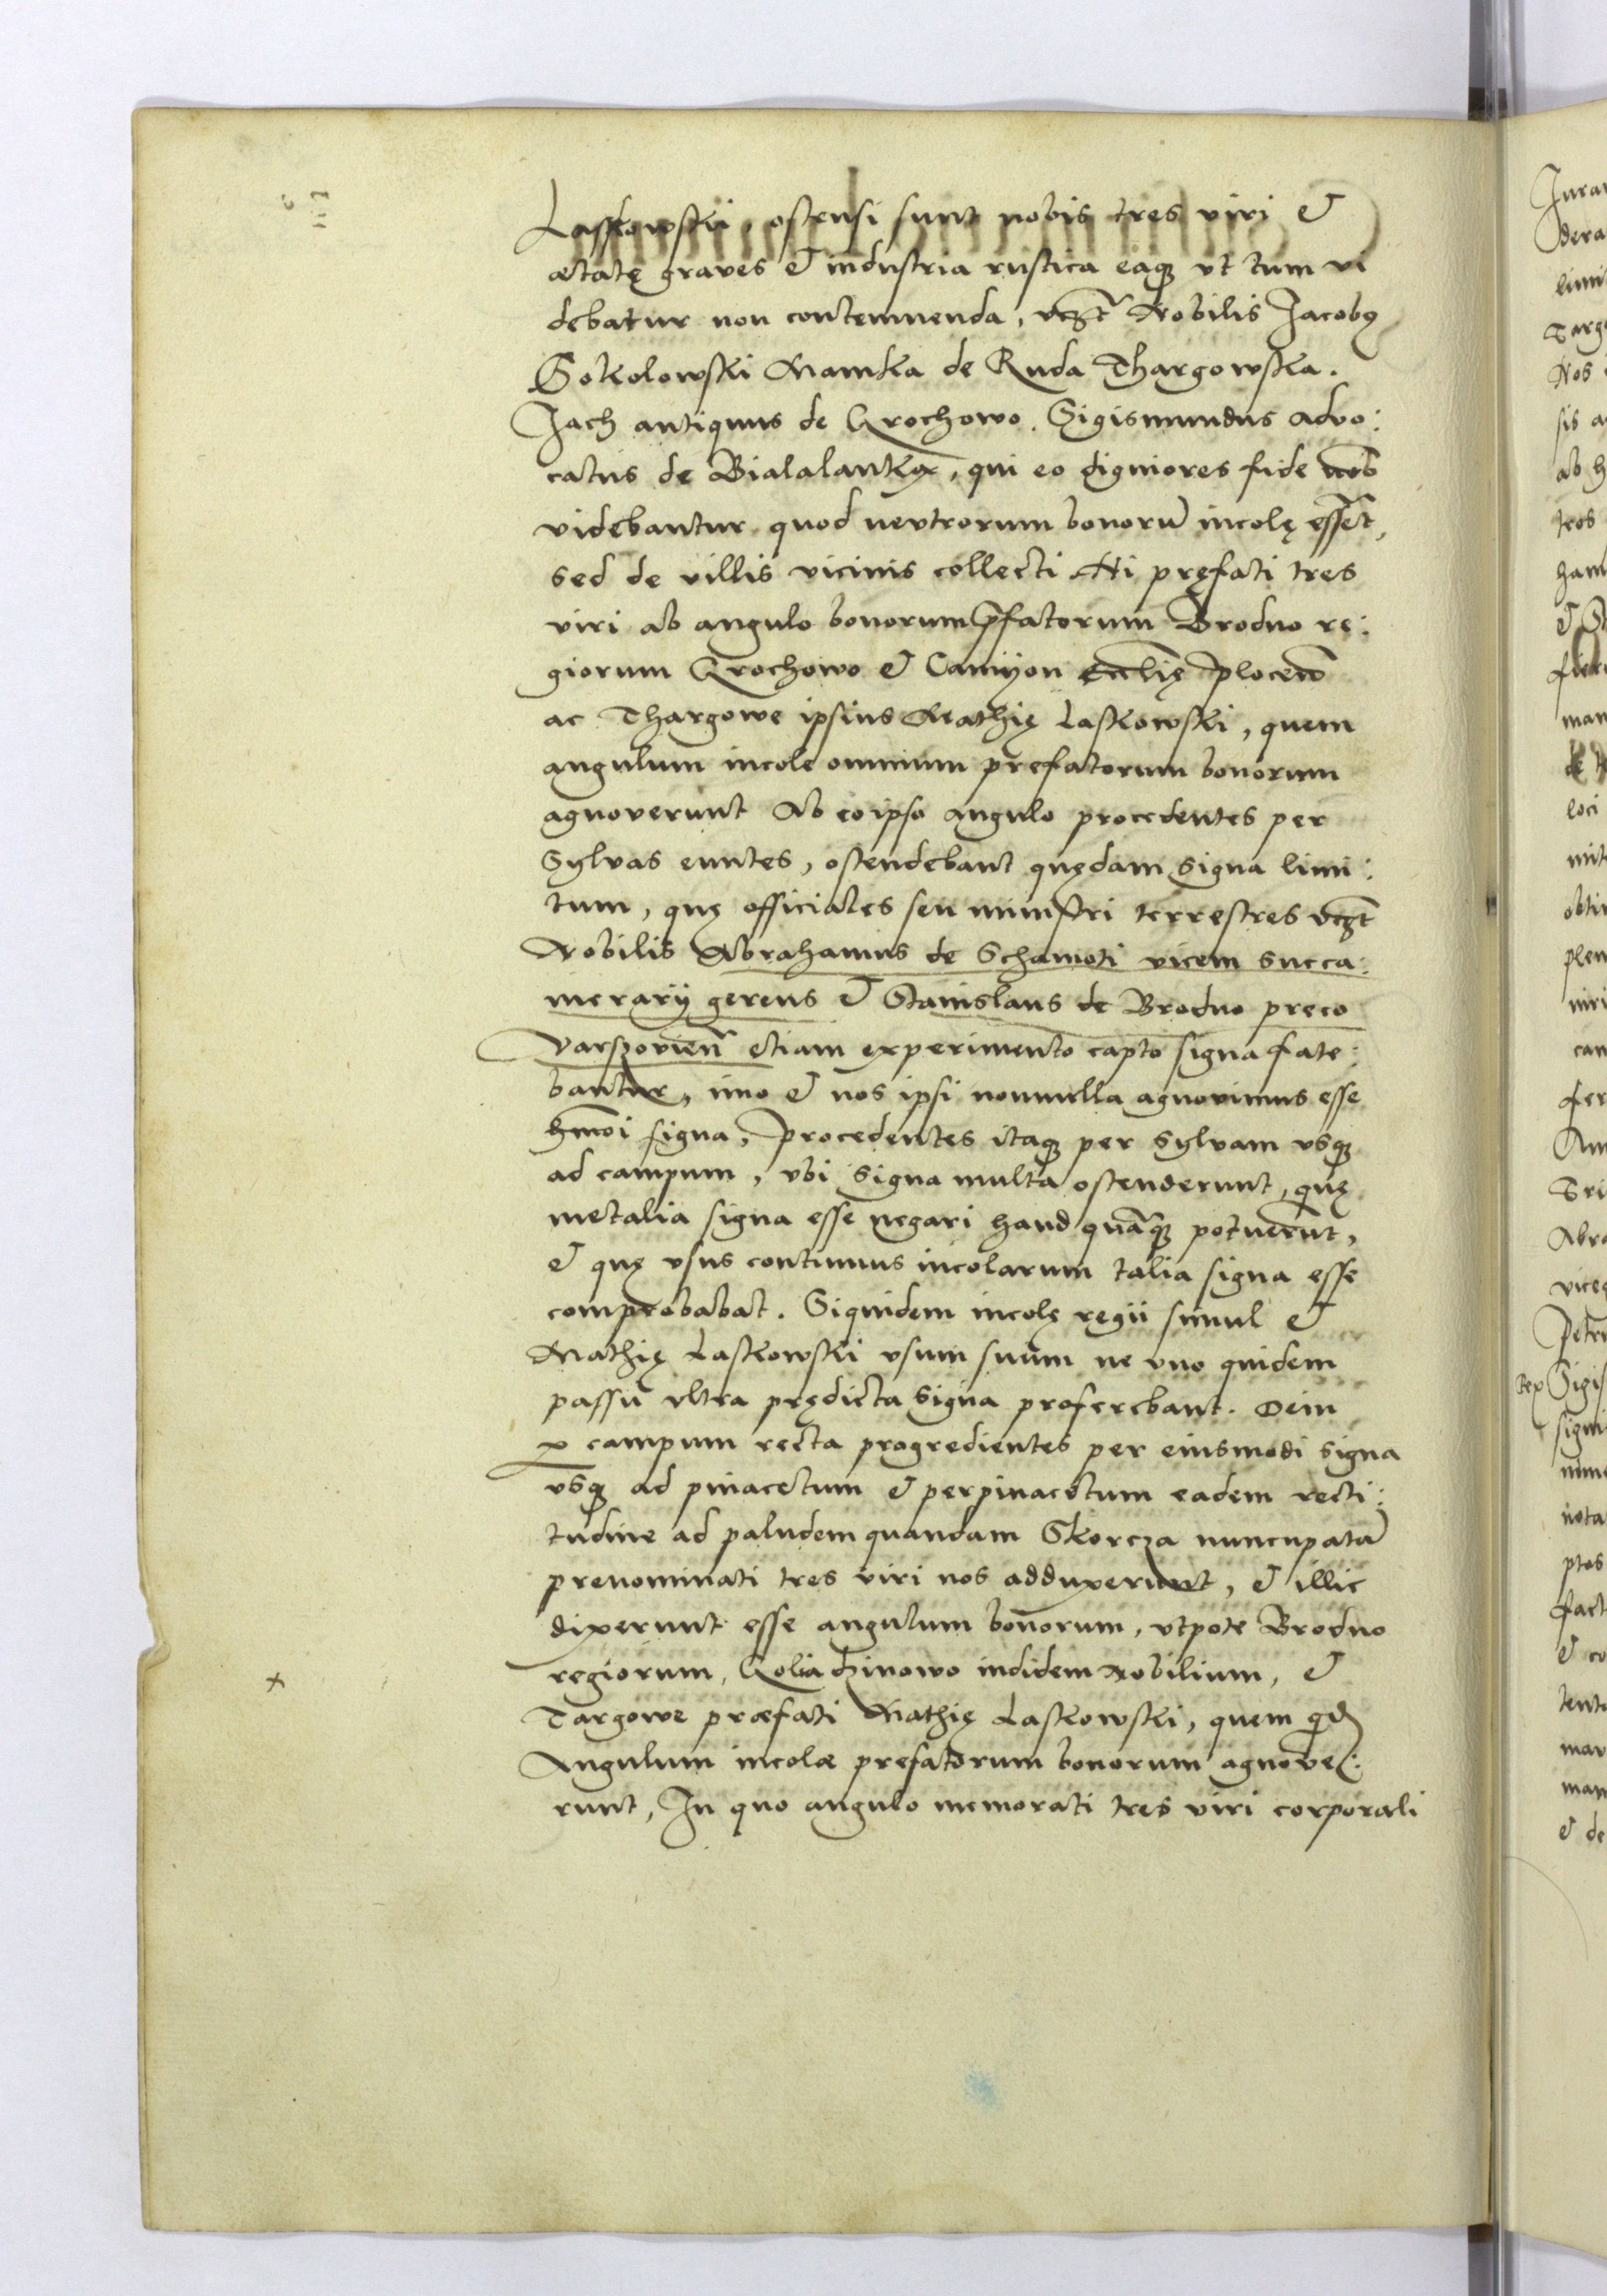 Laskowski, ostensi sunt nobis tres viri &
ætatę graves & industria rustica eaq; vt tum vi
debatur non contemnenda, vczt Nobilis Jacobg
Sokolowski Mamka de Ruda Thargowska.
Jach antiquus de Grochowo. Sigismundus advo:
catus de Bialalanka, qui eo digniores fide nob
videbantur quod neutrorum bonorū incolę essent,
sed de villis vicinis collecti. Hi pręfati tres
viri ab angulo bonorum p̄fatorum Brodno re:
giorum Grochowo & Camyon Ecclię plocen̄
ac Thargowe ipsius Mathię Laskowski, quem
angulum incole omnium prefatorum bonorum
agnoverunt Ab eo ipso angulo procedentes per
Sylvas euntes, ostendebant quędam signa limi:
tum, quę officiales seu ministri terrestres vczt
Nobilis Abrahamus de Schamoti vicem succa:
merarij gerens & Stanislaus de Brodno preco
Varszovien̄ etiam experimento capto signa fate:
bantur, imo & nos ipsi nonnulla agnovimus esse
hmōi signa, Procedentes itaq; per sylvam vsq;
ad campum, vbi signa multa ostenderunt, quę
metalia signa esse negari haud quāq; potuerunt,
& quę vsus continuus incolarum talia signa esse
comprobabat. Siquidem incolę regii simul &
Mathię Laskowski vsum suum ne vno quidem
passu vltra prędicta signa proferebant. Dein
p campum recta progredientes per eiusmodi signa
vsq; ad pinacetum & per pinacetum eadem recti:
tudine ad paludem quandam Skorcza nuncupatā
prenominati tres viri nos adduxerunt, & illic
dixerunt esse angulum bonorum, vtpote Brodno
regiorum, Goliadzinowo indidem nobilium, &
Targowe præfati Mathię Laskowski, quem qd
Angulum incolæ prefatorum bonorum agnove:
runt, In quo angulo memorati tres viri corporali